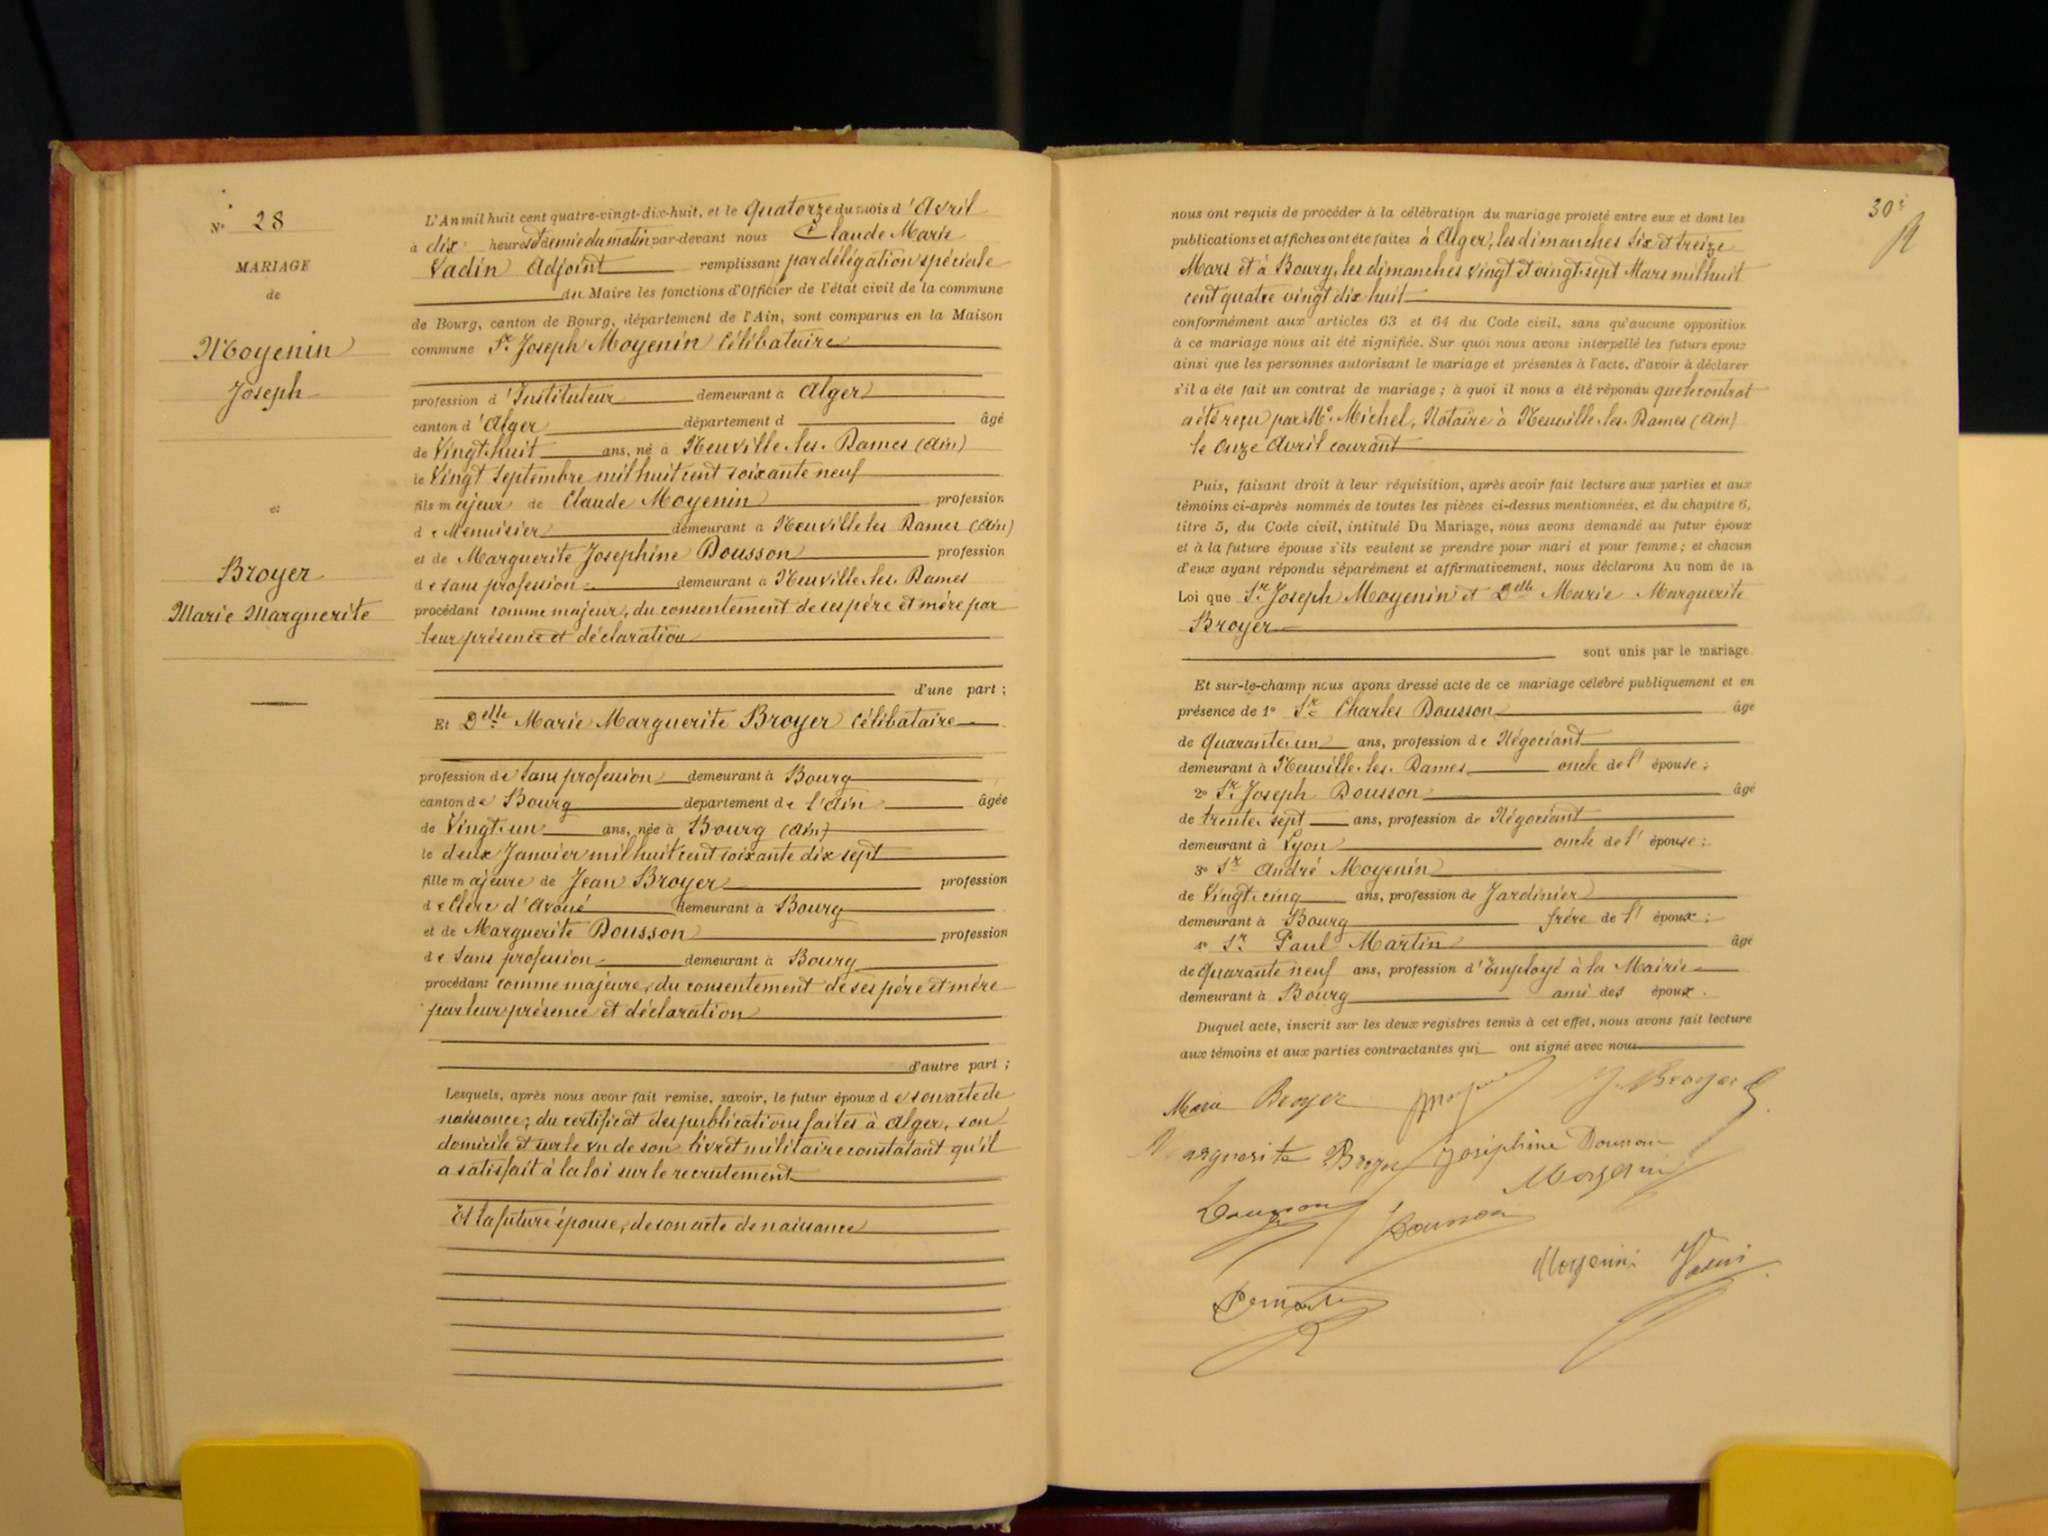 N° 28
MARIAGE
de
Moyenin
Joseph
et
Broyer
Marie Marguerite
L'An mil huit cent quatre-vingt-dix-huit, et le quatorze du mois d'Avril
à dix heures et demie du matin par-devant nous Claude Marie
Vadin Adjoint remplissant par délégation spéciale
du Maire les fonctions d'Officier de l'état civil de la commune
de Bourg, canton de Bourg, département de l'Ain, sont comparus en la Maison
commune Sr. Joseph Moyenin Célibataire
profession d'Instituteur demeurant à Alger
canton d'Alger département d âgé
de Vingt-huit ans, né à Neuville-les-Dames (Ain)
le Vingt Septembre mil huit cent soixante neuf
fils majeur de Claude Moyenin profession
de Menuisier demeurant à Neuville les Dames (Ain)
et de Marguerite Josephine Dousson profession
de sans profession demeurant à Neuville-les-Dames
procédant comme majeur, du consentement de ses père et mère par
leur présence et déclaration
d'une part ;
Et Delle Marie Marguerite Broyer Célibataire
profession de Sans profession demeurant à Bourg
canton de Bourg département de l'Ain âgée
de Vingt-un ans, née à Bourg (Ain)
le deux Janvier mil huit cent soixante dix sept
fille majeure de Jean Broyer profession
de Clerc d'Avoué demeurant à Bourg
et de Marguerite Dousson profession
de Sans profession demeurant à Bourg
procédant comme majeure, du consentement de ses père et mère
par leur présence et déclaration
d'autre part ;
Lesquels, après nous avoir fait remise, savoir, le futur époux de son acte de
naissance; du certificat des publications faites à Alger, son
domicile et sur le vu de son livret militaire constatant qu'il
a satisfait à la loi sur le recrutement
Et la future épouse, de son acte de naissance
30e
nous ont requis de procéder à la célébration du mariage projeté entre eux et dont les
publications et affiches ont été faites à Alger, les dimanches six et treize
Mars et à Bourg, les dimanches vingt et vingt-sept Mars mil huit
cent quatre vingt dix huit
conformément aux articles 63 et 64 du Code civil, sans qu'aucune opposition
à ce mariage nous ait été signifiée. Sur quoi nous avons interpellé les futurs époux
ainsi que les personnes autorisant le mariage et présentes à l'acte, d'avoir à déclarer
s'il a été fait un contrat de mariage ; à quoi il nous a été répondu que le contrat
a été reçu par Me. Michel, Notaire à Neuville-les-Dames (Ain)
le Onze Avril courant
Puis, faisant droit à leur réquisition, après avoir fait lecture aux parties et aux
témoins ci-après nommés de toutes les pièces ci-dessus mentionnées, et du chapitre 6,
titre 5, du Code civil, intitulé Du Mariage, nous avons demandé au futur époux
et à la future épouse s'ils veulent se prendre pour mari et pour femme ; et chacun
d'eux ayant répondu séparément et affirmativement, nous déclarons Au nom de la
Loi que Sr. Joseph Moyenin et Delle Marie Marguerite
Broyer
sont unis par le mariage.
Et sur-le-champ nous avons dressé acte de ce mariage célébré publiquement et en
présence de 1° Sr. Charles Dousson âgé
de quarante-un ans, profession de Négociant
demeurant à Neuville-les-Dames oncle de l'épouse ;
2° Sr. Joseph Dousson âgé
de trente-sept ans, profession de Négociant
demeurant à Lyon oncle de l'épouse ;
3° Sr. André Moyenin
de Vingt-cinq ans, profession de Jardinier
demeurant à Bourg frère de l'époux ;
4° Sr. Paul Martin âgé
de quarante neuf ans, profession d'Employé à la Mairie
demeurant à Bourg ami des époux.
Duquel acte, inscrit sur les deux registres tenus à cet effet, nous avons fait lecture
aux témoins et aux parties contractantes qui ont signé avec nous
Marie Broyer J. Broyer
Marguerite Broyer Joséphine Dousson
Moyenin
Dousson Dousson
Moyenin Vadin